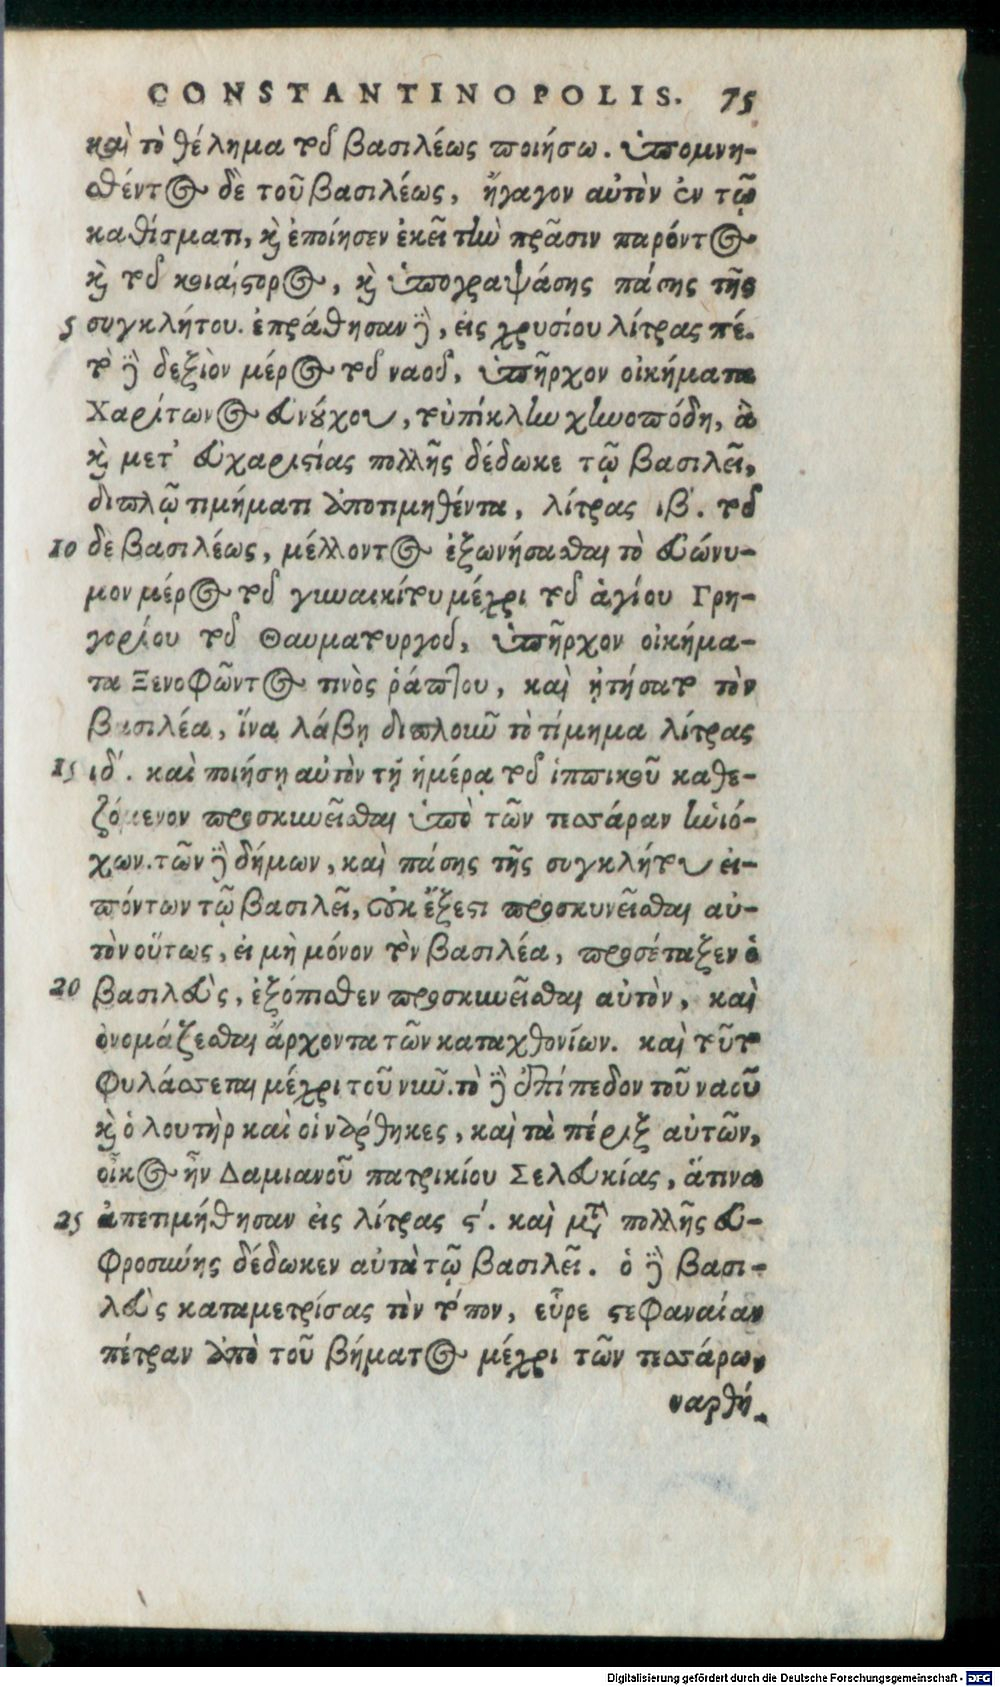 CONSTANTINOPOLIS. 75
καὶ τὸ θέλημα τοῦ βασιλέως ποιήσω. ὑπομνη-
σθέντος δὲ τοῦ βασιλέως, ἤγαγον αὐτὸν ἐν τῷ
καθίσματι, καὶ ἐποίησεν ἐκεῖ τὴν πρᾶσιν παρόντος
καὶ τοῦ κοιαίστορος, καὶ ὑπογραψάσης πάσης τῆς
5 συγκλήτου. ἐπράθησαν δὲ, εἰς χρυσίου λίτρας πέ.
τὸ δὲ δεξιὸν μέρος τοῦ ναοῦ, ὑπῆρχον οἰκήματα
Χαρίτωνος εὐνούχου, τοὐπίκλην χηνοπόδη, ἃ
καὶ μετ' εὐχαριστίας πολλῆς δέδωκε τῷ βασιλεῖ,
διπλῷ τιμήματι ἀποτιμηθέντα, λίτρας ιβ. τοῦ
10 δὲ βασιλέως, μέλλοντος ἐξωνήσασθαι τὸ εὐώνυ-
μον μέρος τοῦ γυναικίτου μέχρι τοῦ ἁγίου Γρη-
γορίου τοῦ Θαυματουργοῦ, ὑπῆρχον οἰκήμα-
τα Ξενοφῶντος τινὸς ῥάπτου, καὶ ᾐτήσατο τὸν
βασιλέα, ἵνα λάβῃ διπλοῦν τὸ τίμημα λίτρας
15 ιδ'. καὶ ποιήσῃ αὐτὸν τῇ ἡμέρᾳ τοῦ ἱππικοῦ καθε-
ζόμενον προσκυνεῖσθαι ὑπὸ τῶν τεσσάραν ἡνιό-
χων. τῶν δὲ δήμων, καὶ πάσης τῆς συγκλήτου εἰ-
πόντων τῷ βασιλεῖ, οὐκ ἔξεστι προσκυνεῖσθαι αὐ-
τὸν οὕτως, εἰ μὴ μόνον τὸν βασιλέα, προσέταξεν ὁ
20 βασιλεὺς, ἐξόπισθεν προσκυνεῖσθαι αὐτὸν, καὶ
ὀνομάζεσθαι ἄρχοντα τῶν καταχθονίων. καὶ τοῦτο
φυλάσσεται μέχρι τοῦ νῦν. τὸ δὲ ἐπίπεδον τοῦ ναοῦ
καὶ ὁ λουτὴρ καὶ οἱ νάρθηκες, καὶ τὰ πέριξ αὐτῶν,
οἶκος ἦν Δαμιανοῦ πατρικίου Σελευκίας, ἅτινα
25 ἀπετιμήθησαν εἰς λίτρας ϛ'. καὶ μετὰ πολλῆς εὐ-
φροσύνης δέδωκεν αὐτὰ τῷ βασιλεῖ. ὁ δὲ βασι-
λεὺς καταμετρίσας τὸν τόπον, εὗρε στεφαναίαν
πέτραν ἀπὸ τοῦ βήματος μέχρι τῶν τεσσάρων
ναρθή-
Digitalisierung gefördert durch die Deutsche Forschungsgemeinschaft - DFG